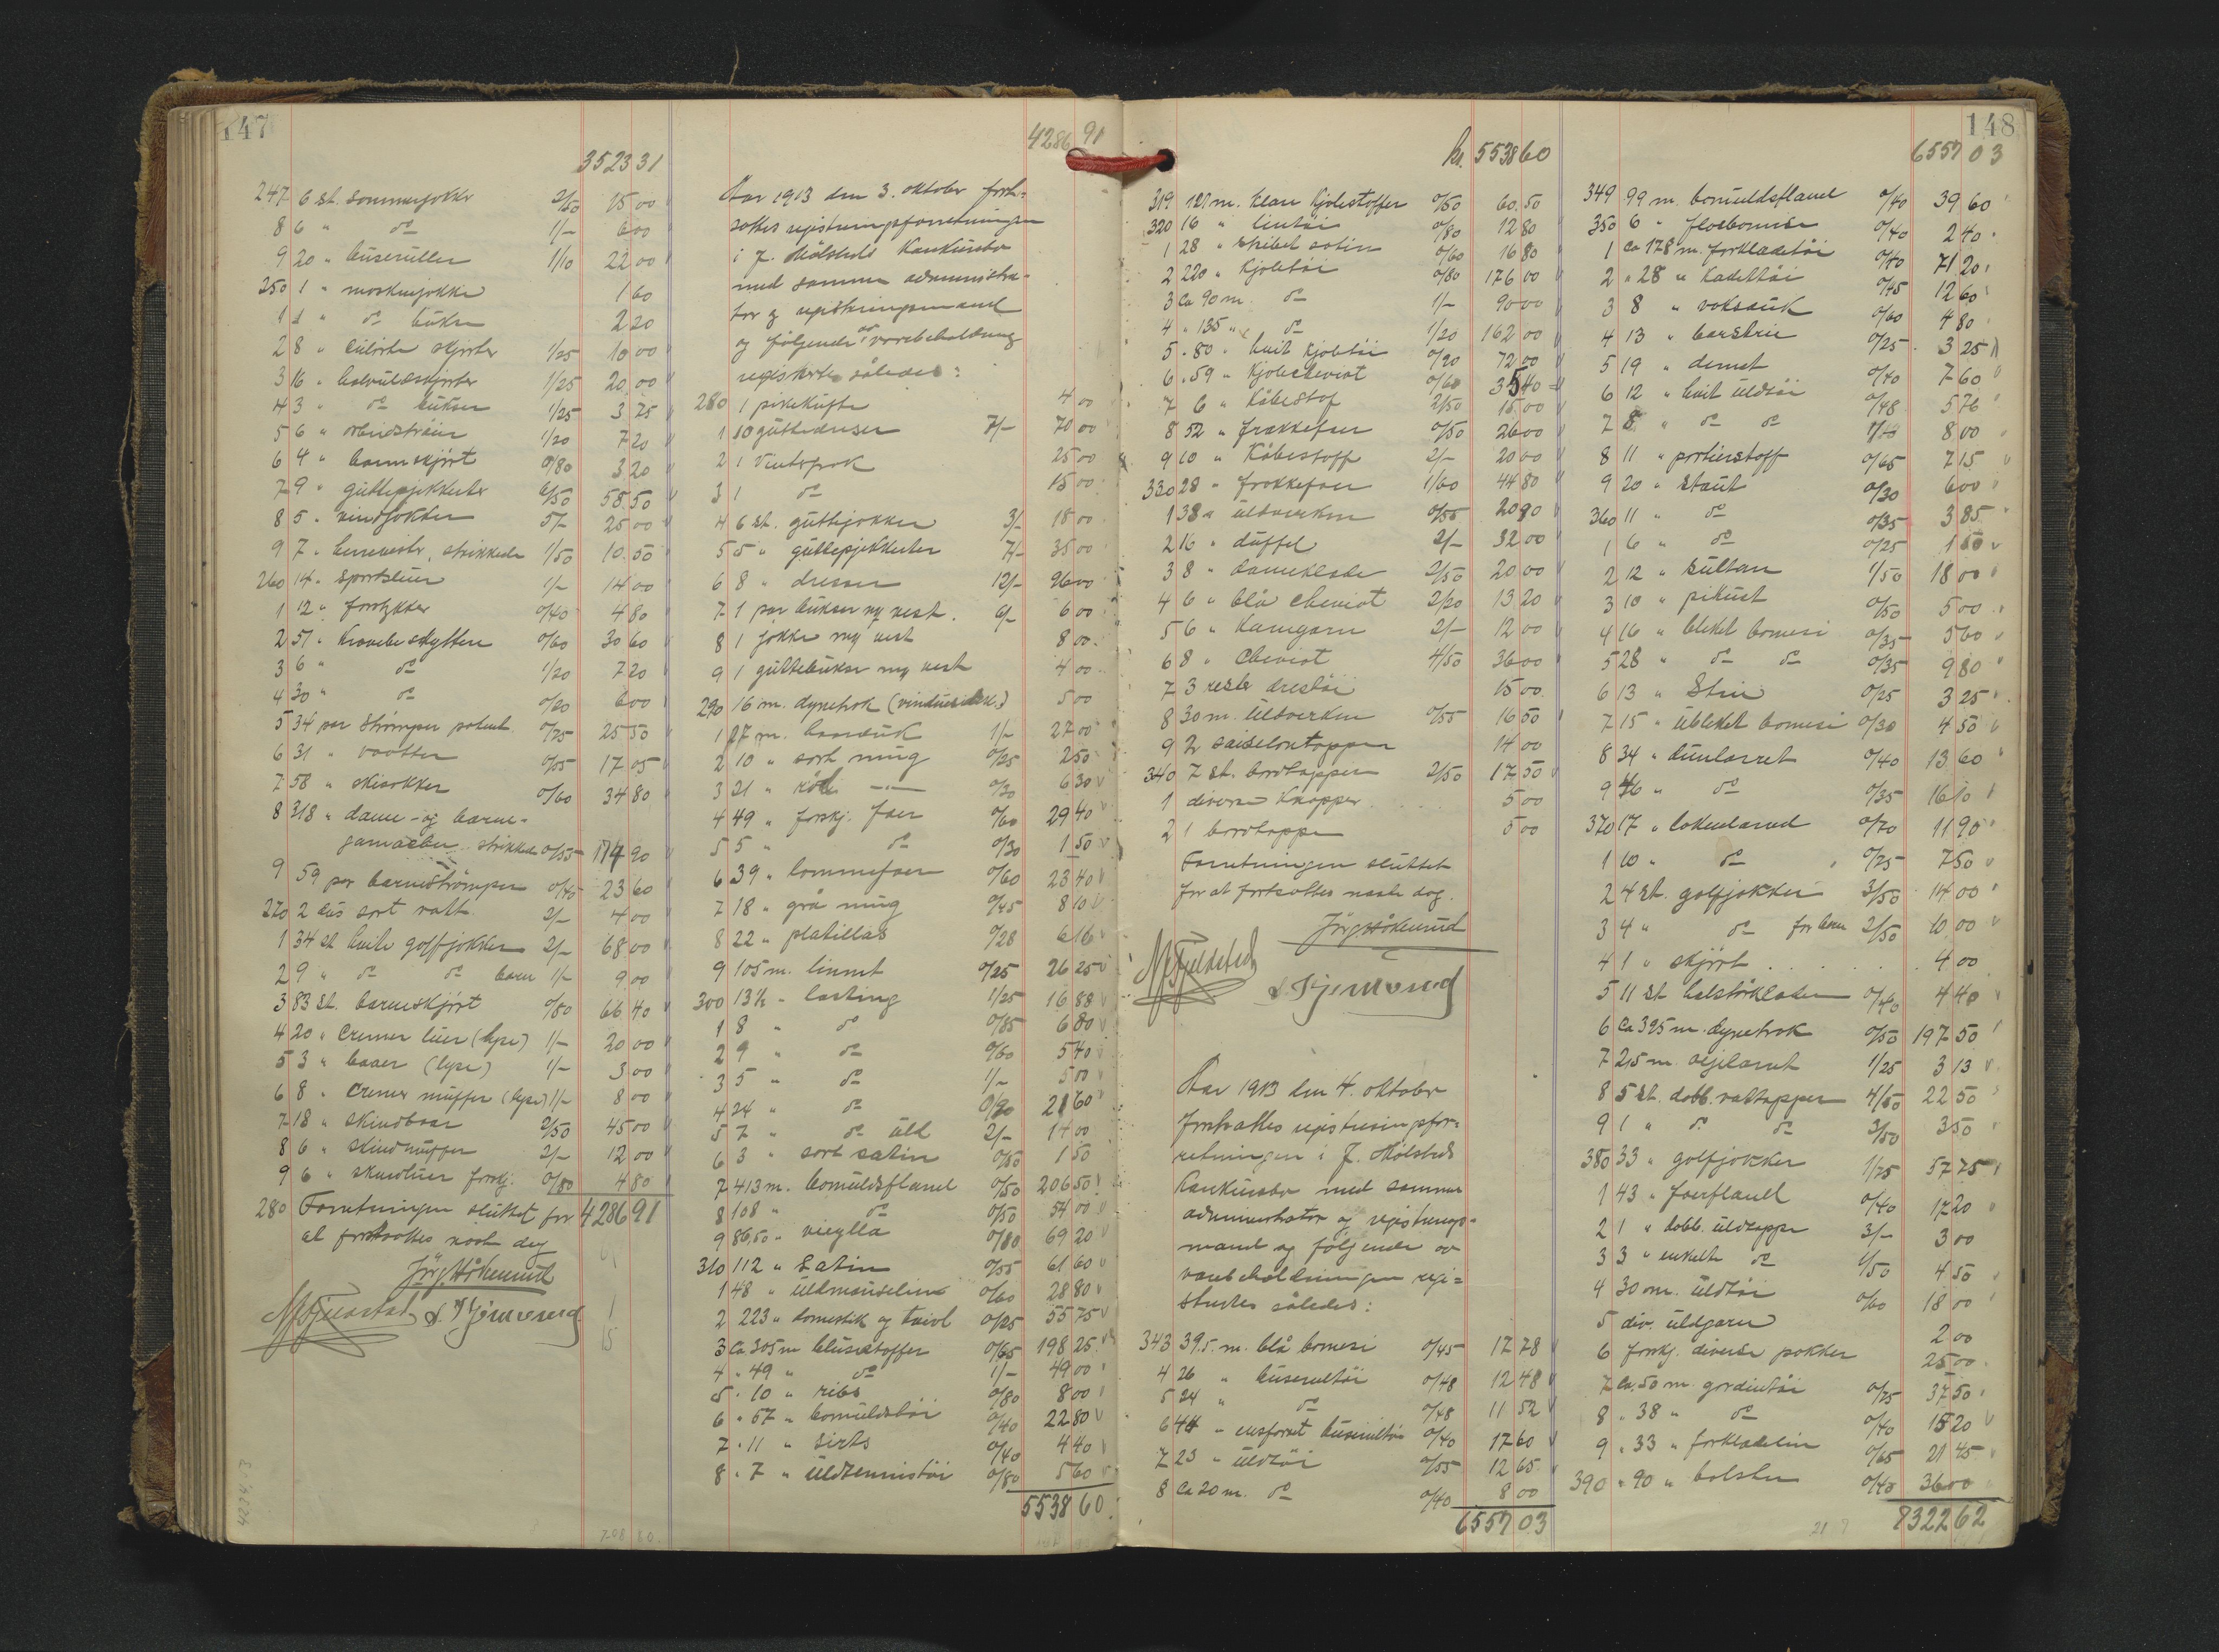 147
3523 31
247 6 st. sommerjokker 2/50 15 00
8 6 " do 1/- 6 00
9 20 " buseruller 1/10 22 00
250 1 " 1 60
1 1 " do bukse 2 20
2 8 " skjorter 1/25 10 00
3 16 " halvuldskjorter 1/25 20 00
4 3 " do bukser 1/25 3 75
5 6 " arbeidströier 1/20 7 20
6 4 " barneskjört 0/80 3 20
7 9 " guttepjekkerter 6/50 58 50
8 5 " vindjokker 5/- 25 00
9 7 " strikkede 1/50 10 50
260 14 " sportsluer 1/- 14 00
1 12 " forstykker 0/40 4 80
2 51 " Kravebeskyttere 0/60 30 60
3 6 " do 1/20 7 20
4 30 " do 0/20 6 00
5 34 par Strömper patent 0/75 25 50
6 31 " vaatter 0/55 17 05
7 58 " skisokker 0/60 34 80
8 318 " dame- og barne-
gamacher strikkede 0/55 174 90
9 59 par barneströmper 0/40 23 60
270 2 dus sort vatt 2/- 4 00
1 34 st hvite golfjokker 2/- 68 00
2 9 " do do barn 1/- 9 00
3 83 st. barneskjört 0/80 66 40
4 20 " Cremer luer (lyse) 1/- 20 00
5 3 " boaer (lyse) 1/- 3 00
6 8 " Cremer muffer (lyse) 1/- 8 00
7 18 " skindboaer 2/50 45 00
8 6 " skindmuffer 2/- 12 00
9 6 " skindluer forskj. 0/80 4 80
280 Forretningen sluttet for 4286 91
at fortsættes næste dag
Jörg Hökerud
4286 91
Aar 1913 den 3. oktober fort-
sattes registreringsforretningen
i J. Mölsteds Konkursbo
med samme administra-
tor og registreringsmænd
og følgende av varebeholdning
registrertes således:
280 1 pikekufte 4 00
1 10 guttedresser 7/- 70 00
2 1 Vinterfrak 25 00
3 1 do 15 00
4 6 st. guttejokker 3/- 18 00
5 5 " guttepjekkerter 7/- 35 00
6 8 " dresser 12/- 96 00
7 1 par bukser og vest. 6/- 6 00
8 1 jokke og vest 8 00
9 1 guttebukse og vest 4 00
290 16 m. dynetrek 5 00
1 27 m. 1/- 27 00
2 10 " sort ming 0/25 2 50
3 21 " röd -"- 0/30 6 30
4 49 " forskj. foer 0/60 29 40
5 5 " do 0/30 1 50
6 39 " lommefoer 0/60 23 40
7 18 " grå ming 0/45 8 10
8 22 " platillas 0/28 6 16
9 105 m. linnet 0/25 26 25
300 13½ " lasting 1/25 16 88
1 8 " do 0/85 6 80
2 9 " do 0/60 5 40
3 5 " do 1/- 5 00
4 24 " do 0/90 21 60
5 7 " do uld 2/- 14 00
6 3 " sort satin 0/50 1 50
7 413 m. bomuldsflanel 0/50 206 50
8 108 " do 0/50 54 00
9 86,50 " vieylla 0/80 69 20
310 112 " Satin 0/55 61 60
1 48 " uldmouselin 0/60 28 80
2 223 " domestik og tvivl 0/25 55 75
3 Ca 305 m blusestoffer 0/65 198 25
4 " 49 " do 1/- 49 00
5 " 10 " ribs 0/80 8 00
6 " 57 " bomuldstöi 0/40 22 80
7 " 11 " sirts 0/40 4 40
8 " 7 " uldtennistöi 0/80 5 60
5538 60
148
Kr. 5538 60
319 121 m. Kjolestoffer 0/50 60 50
320 16 " lintöi 0/80 12 80
1 28 " satin 0/60 16 80
2 220 " Kjoletöi 0/80 176 00
3 Ca 90 m. do 1/- 90 00
4 " 135 " do 1/20 162 00
5 " 80 " hvit Kjoletöi 0/90 72 00
6 " 59 " Kjolecheviot 0/60 35 40
7 6 " Kåbestof 2/50 15 00
8 52 " frakkefoer 0/50 26 00
9 10 " Kåbestoff 2/- 20 00
330 28 " frakkefoer 1/60 44 80
1 38 " uldverken 0/55 20 90
2 16 " duffel 2/- 32 00
3 8 " dameklæde 2/50 20 00
4 6 " blå cheviot 2/20 13 20
5 6 " Kamgarn 2/- 12 00
6 8 " Cheviot 4/50 36 00
7 3 rester drestöi 15 00
8 30 m. uldverken 0/55 16 50
9 2 saiselontepper 14 00
340 7 st. bordtepper 2/50 17 50
1 diverse Knapper 5 00
2 1 bordteppe 5 00
Forretningen sluttet
for at fortsættes næste dag.
Jörg Hökerud
Aar 1913 den 4. oktober
fortsattes registreringsfor-
retningen i J. Mölsteds
Konkursbo med samme
administrator og registrerings-
mænd og følgende av
varebeholdningen regi-
strertes således:
343 39.5 m. blå bomesi 0/45 17 78
4 26 " buserultöi 0/48 12 48
5 24 " do 0/48 11 52
6 44 " ensfarvet buserultöi 0/40 17 60
7 23 " uldtöi 0/55 12 65
8 Ca 20 m. do 0/40 8 00
6557 03
6557 03
349 99 m. bomuldsflanel 0/40 39 60
350 6 " floebomesi 0/40 2 40
1 Ca 178 m. forklædetöi 0/40 71 20
2 " 28 " Kadettöi 0/45 12 60
3 8 " voksduk 0/60 4 80
4 13 " 0/25 3 25
5 19 " 0/40 7 60
6 12 " hvit uldtöi 0/48 5 76
7 8 " do do 1/- 8 00
8 11 " portierstoff 0/65 7 15
9 20 " staut 0/30 6 00
360 11 " do 0/35 3 85
1 6 " do 0/25 1 50
2 12 " Sultan 1/50 18 00
3 10 " pikust 0/50 5 00
4 16 " bleket bomesi 0/35 5 60
5 28 " do do 0/35 9 80
6 13 " Strie 0/25 3 25
7 15 " ubleket bomesi 0/30 4 50
8 34 " dunlærret 0/40 13 60
9 46 " do 0/35 16 10
370 17 " lakenlærred 0/70 11 90
1 10 " do 0/75 7 50
2 4 st. golfjokker 3/50 14 00
3 4 " do for barn 2/50 10 00
4 1 " skjört 4 00
5 11 st. halstörklæder 0/40 4 40
6 Ca 395 m. dynetrek 0/50 197 50
7 2,5 m. seillærret 1/25 3 13
8 5 st. dobb. vattepper 4/50 22 50
9 1 " do do 3/50 3 50
380 33 " golfjokker 1/75 57 75
1 43 " foerflanell 0/40 17 20
2 1 " dobb. uldteppe 3/- 3 00
3 3 " enkelte do 1/50 4 50
4 30 m. uldtöi 0/60 18 00
5 div. uldgarn 2 00
6 forskj. diverse pakker 25 00
7 Ca. 50 m gardintöi 0/75 37 50
8 " 38 " do 0/40 15 20
9 " 33 " forklædelin 0/65 21 45
390 " 90 " bolster 0/40 36 00
7322 62